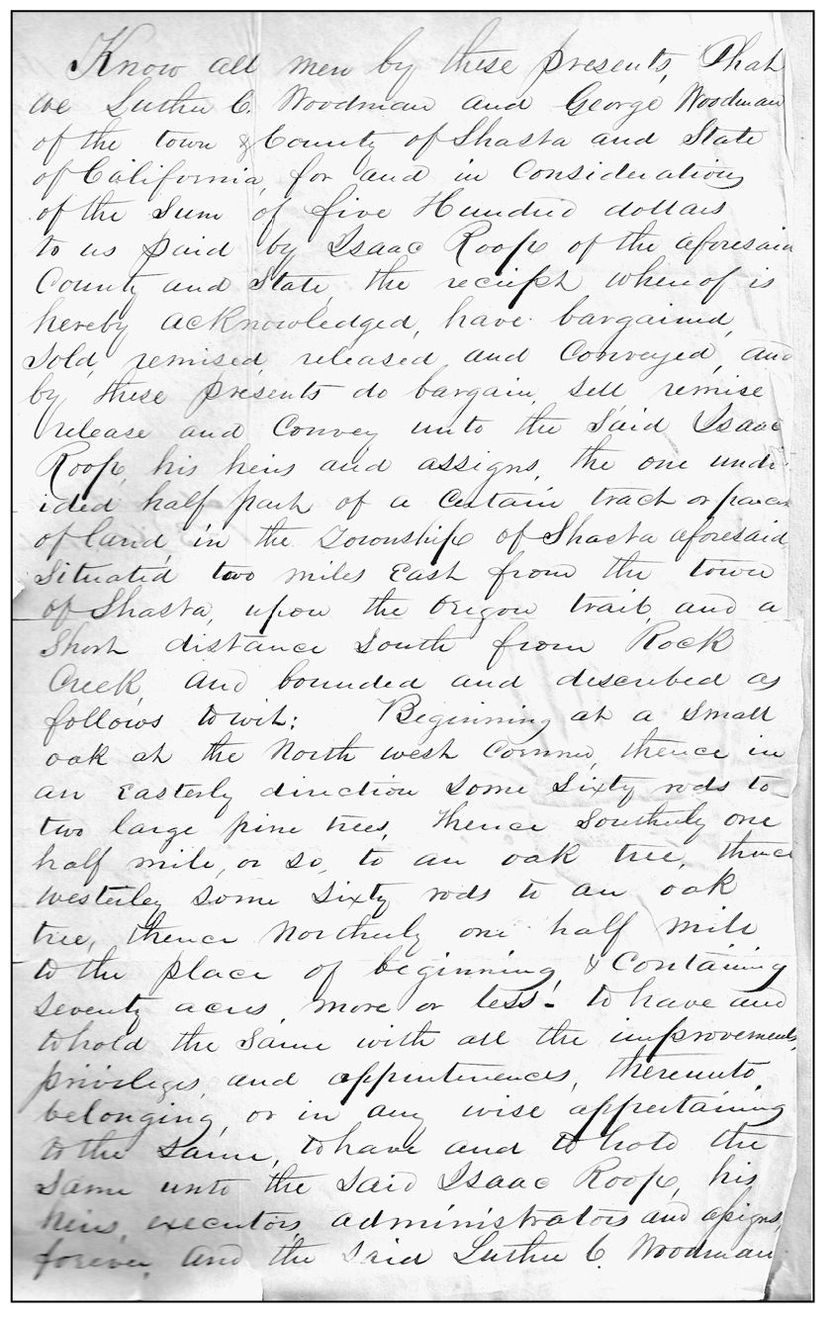 Know all men by these presents, That
we Luther C. Woodman and George Woodman
of the town & County of Shasta and State
of California, for and in Consideration
of the Sum of five Hundred dollars
to us paid by Isaac Roop of the aforesaid
County and State, the reciept whereof is
hereby acknowledged, have bargained,
Sold, remised, released, and Conveyed, and
by these presents do bargain, sell remise
release and Convey unto the Said Isaac
Roop, his heirs and assigns, the one undi-
ided half part of a Certain tract or parcel
of land, in the Township of Shasta aforesaid
Situated two miles East from the town
of Shasta, upon the Oregon trail, and a
Short distance South from Rock
Creek, and bounded and described as
follows towit: Beginning at a Small
oak at the North west Corner, thence in
an Easterly direction Some Sixty rods to
two large pine trees, thence Southerly one
half mile, or so, to an oak tree, thence
westerley Some Sixty rods to an oak
tree, thence Northerly one half mile
to the place of beginning, & Containing
Seventy acres, more or less- to have and
to hold the Same with all the improvements,
privileges, and appurtenances, thereunto
belonging, or in any wise appertaining
to the Same, to have and to hold the
Same unto the Said Isaac Roop, his
heirs, executors, administrators and assigns,
forever, And the Said Luther C. Woodman